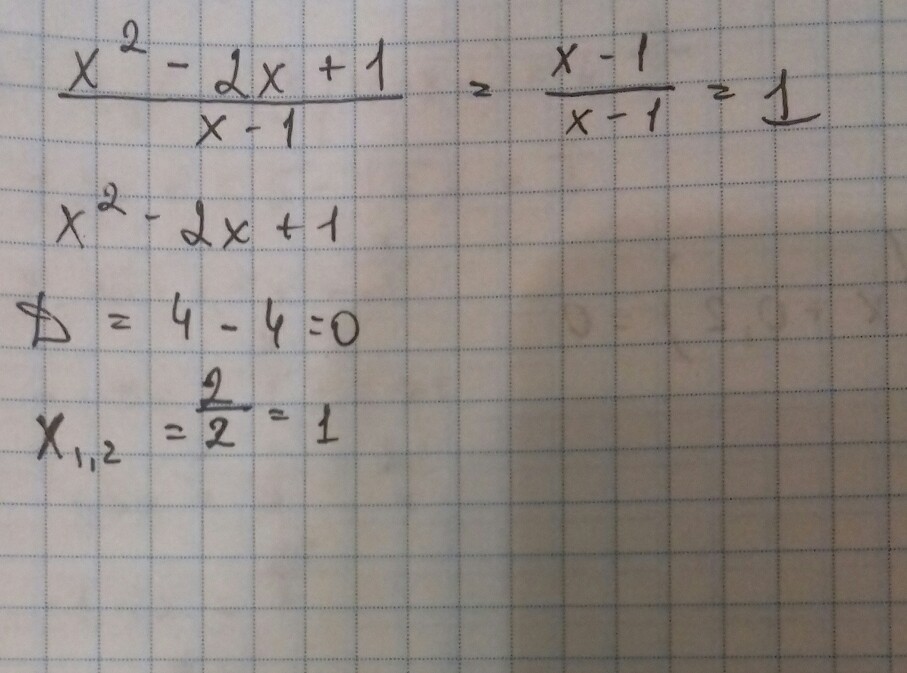 (x² - 2x + 1)/(x - 1) = (x - 1)/(x - 1) = 1
x² - 2x + 1
D = 4 - 4 = 0
x₁,₂ = 2/2 = 1